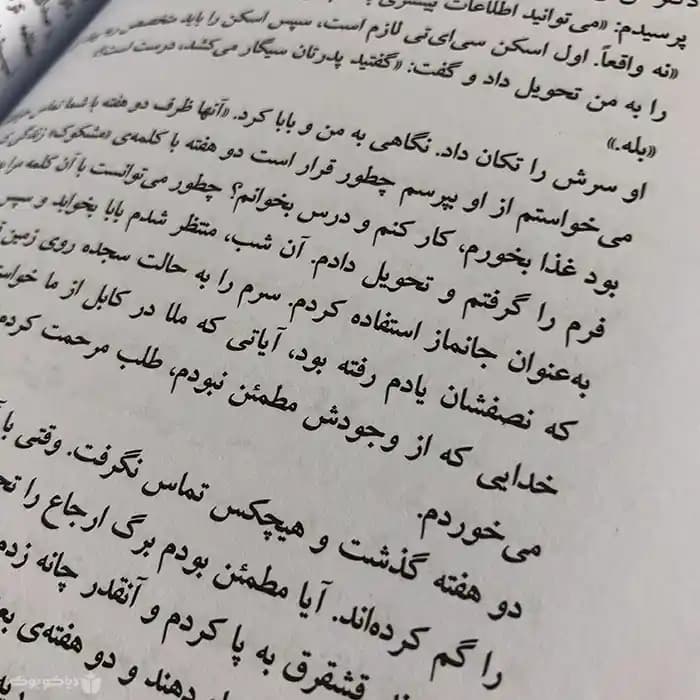 پرسیدم: «می‌توانید اطلاعات بیشتری
«نه واقعاً. اول اسکن سی‌ای‌تی لازم است، سپس اسکن را باید متخصص ریه
را به من تحویل داد و گفت: «گفتید پدرتان سیگار می‌کشد، درست است؟»
«بله.»
او سرش را تکان داد. نگاهی به من و بابا کرد. «آنها ظرف دو هفته با شما تماس
می‌خواستم از او بپرسم چطور قرار است دو هفته با کلمه‌ی «مشکوک» زندگی
بود غذا بخورم، کار کنم و درس بخوانم؟ چطور می‌توانست با آن کلمه مرا
فرم را گرفتم و تحویل دادم. آن شب، منتظر شدم بابا بخوابد و سپس
به‌عنوان جانماز استفاده کردم. سرم را به حالت سجده روی زمین
که نصفشان یادم رفته بود، آیاتی که ملا در کابل از ما
خدایی که از وجودش مطمئن نبودم، طلب مرحمت کردم
می‌خوردم.
دو هفته گذشت و هیچکس تماس نگرفت. وقتی
را گم کرده‌اند. آیا مطمئن بودم برگ ارجاع را
قشقرق به پا کردم و آنقدر چانه
دهند و دو هفته‌ی
دیاکوبوک